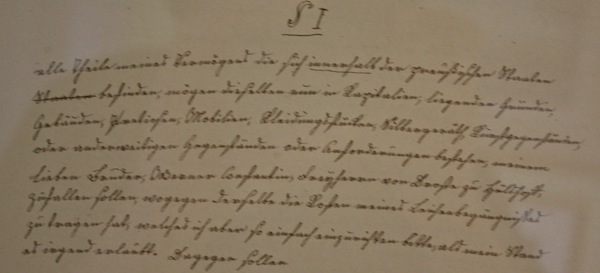 § I
alle Theile meines Vermögens die sich innerhalb der preußischen Staaten
Staaten befinden, mögen dieselben nun in Kapitalien, liegenden Gründen,
Gebäuden, Pretiosen, Mobilien, Kleidungsstücken, Silbergeräth, Kunstgegenständen,
oder anderweitigen Gegenständen oder Anforderungen bestehen, meinem
lieben Bruder, Werner Constantin, Freyherrn von Droste zu Hülshoff,
zufallen sollen, wogegen derselbe die Kosten meines Leichenbegängnißes
zu tragen hat, welches ich aber so einfach einzurichten bitte, als mein Stand
es irgend erlaubt. Dagegen sollen